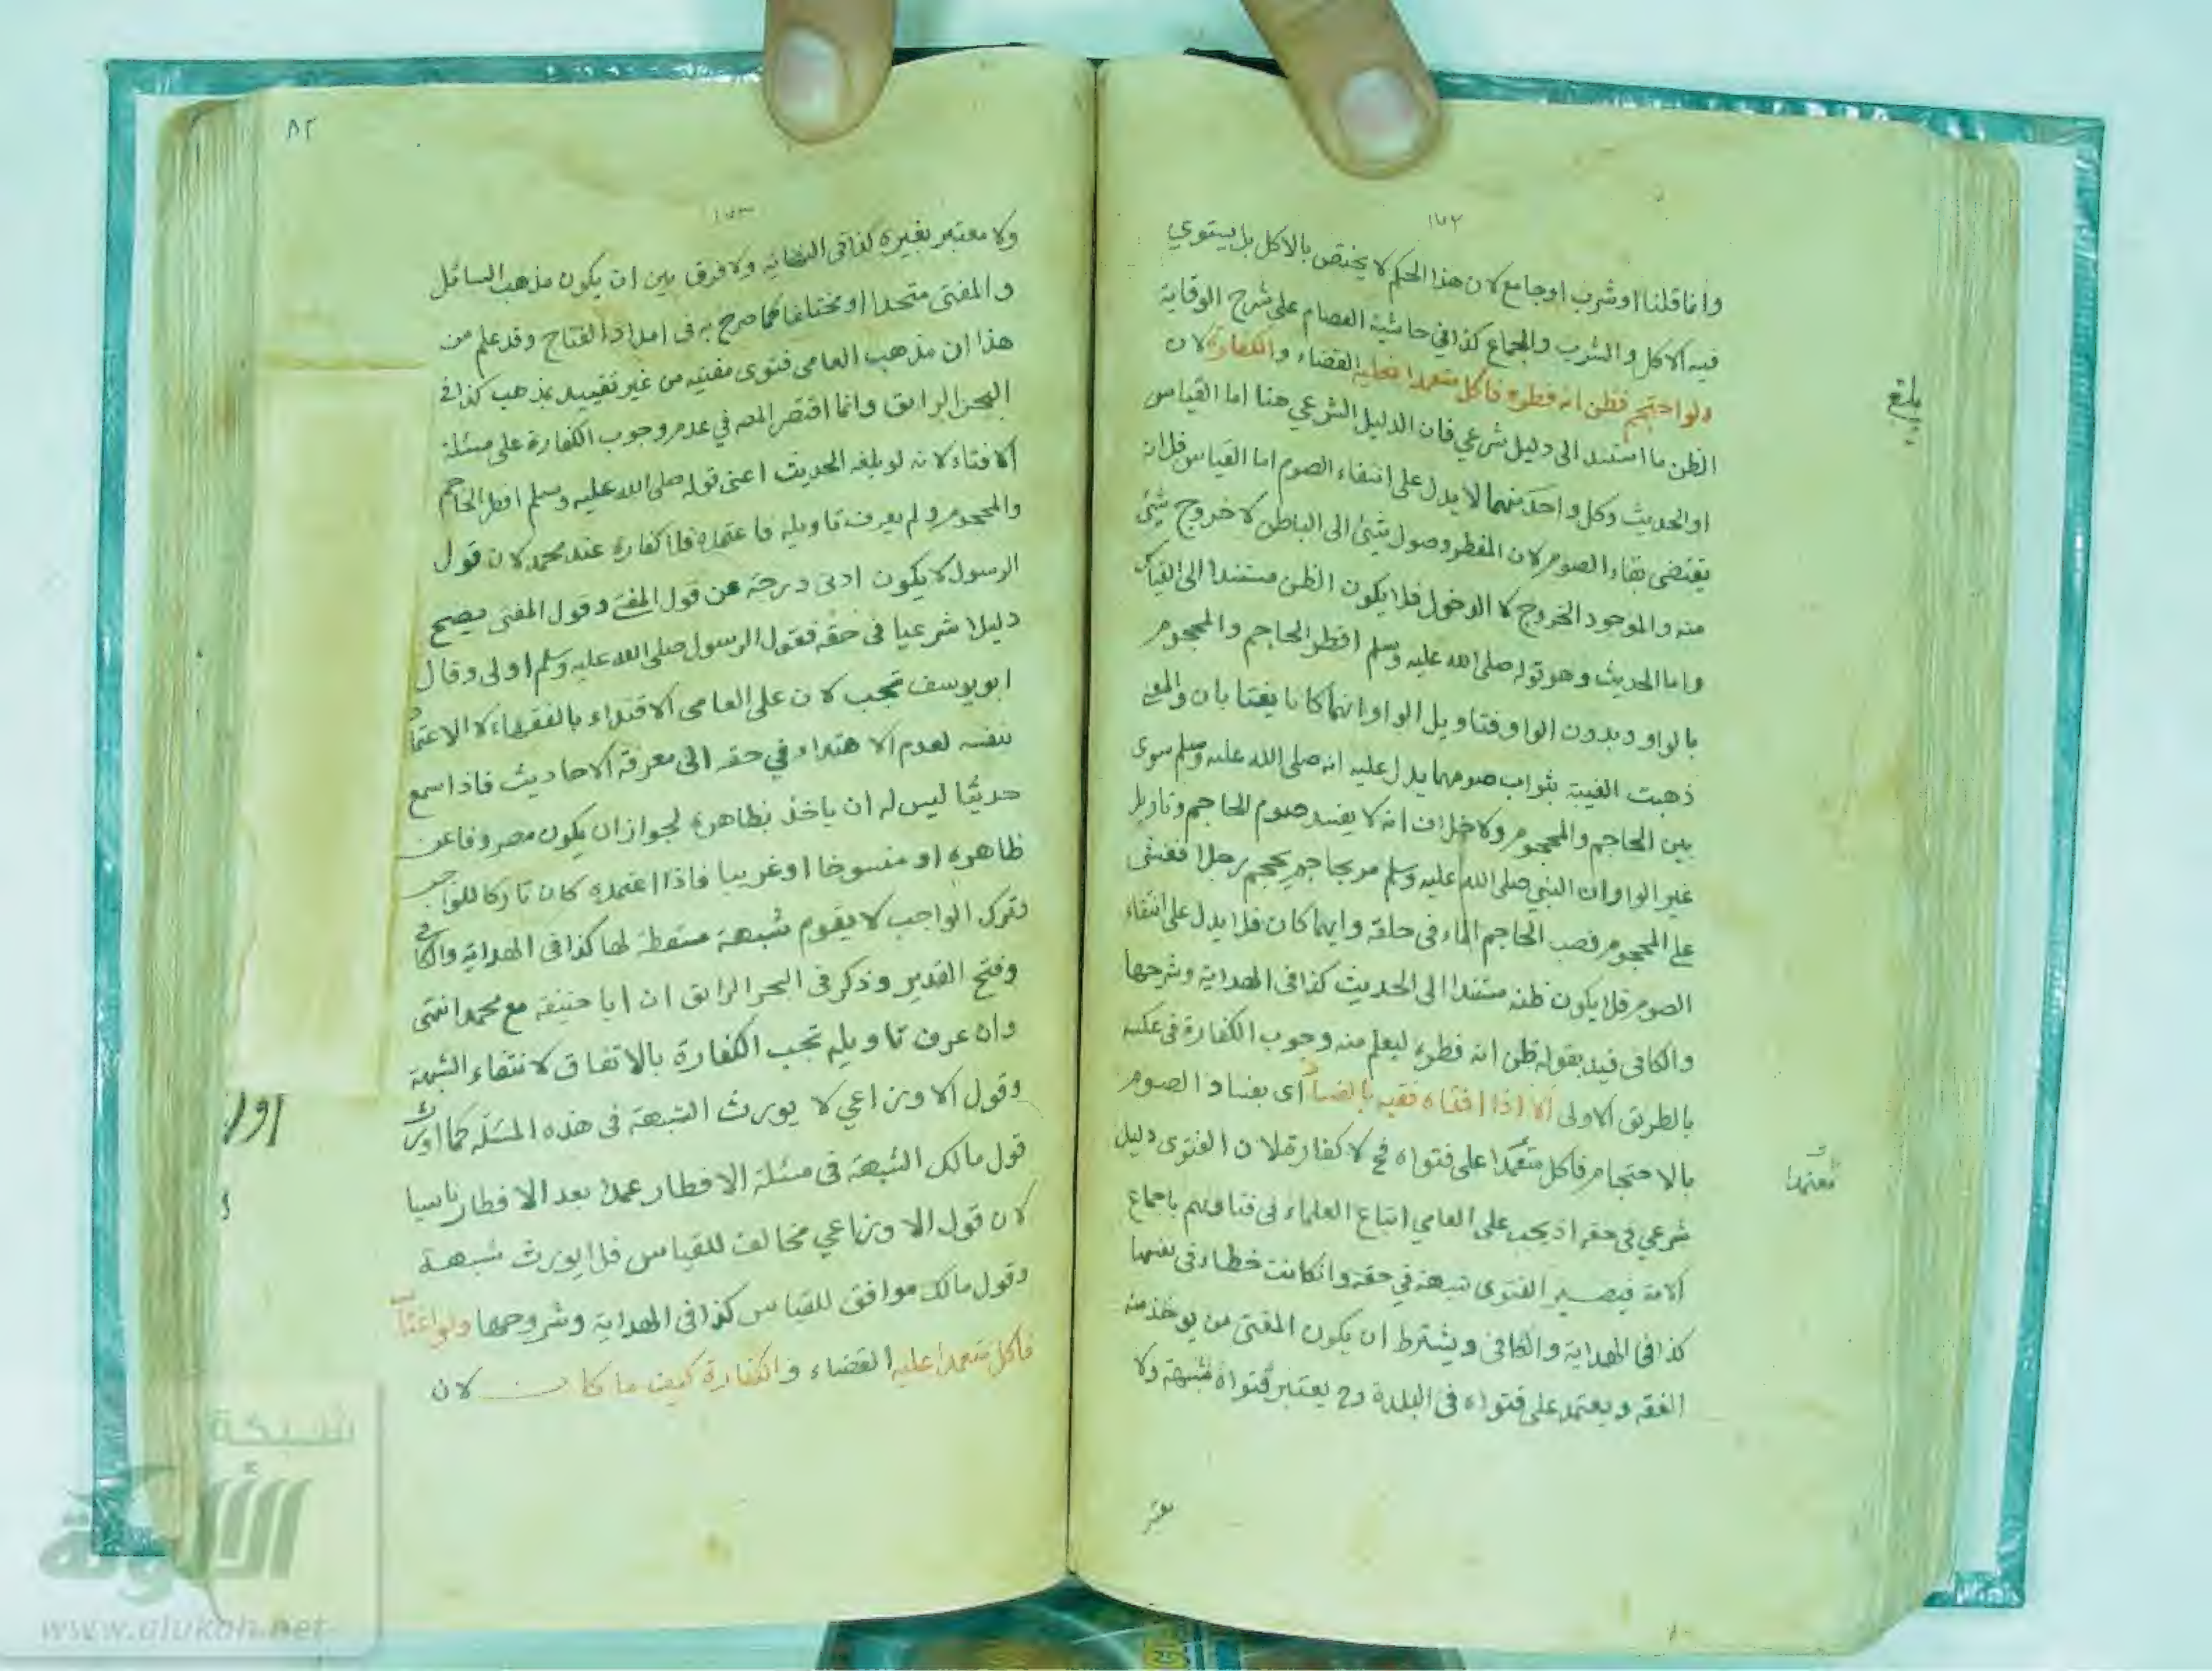 ١٧٢
وانما قلنا او شرب او جامع لان هذا الحكم لا يختص بالاكل بل يستوي
فيه الاكل والشرب والجماع كذا في حاشية العصام على شرح الوقاية
ولو احتجم فظن انه فطره فاكل متعمدا فعليه القضاء والكفارة لان
الظن ما استند الى دليل شرعي فان الدليل الشرعي هنا اما القياس
او الحديث وكل واحد منهما لا يدل على انتفاء الصوم اما القياس فلانه
يقتضي بقاء الصوم لان المفطر وصول شئ الى الباطن لا خروج شئ
منه والموجود الخروج لا الدخول فلا يكون الظن مستندا الى القياس
واما الحديث وهو قوله صلى الله عليه وسلم افطر الحاجم والمحجوم
بالواو وبدون الواو فتاويل الواو انهما كانا يغتابان والمعنى
ذهبت الغيبة بثواب صومهما يدل عليه انه صلى الله عليه وسلم سوى
بين الحاجم والمحجوم ولا خلاف انه لا يفسد صوم الحاجم وتاويل
غير الواو ان النبي صلى الله عليه وسلم مر بحاجم يحجم رجلا فغشى
على المحجوم فصب الحاجم الماء في حلقه وايهما كان فلا يدل على انتفاء
الصوم فلا يكون ظنه مستندا الى الحديث كذا في الهداية وشرحها
والكافي قيد بقوله ظن انه فطره ليعلم منه وجوب الكفارة في عكسه
بالطريق الاولى الا اذا افتاه فقيه بالفساد اى بفساد الصوم
بالاحتجام فاكل متعمدا على فتواه فح لا كفارة لان الفتوى دليل
شرعي في حقه اذ يجب على العامي اتباع العلماء في فتاويهم باجماع
الامة فيصير الفتوى شبهة في حقه وان كانت خطاء في نفسها
كذا في الهداية والكافي ويشترط ان يكون المفتى من يوخذ منه
الفقه ويعتمد على فتواه في البلدة وح يعتبر فتواه شبهة ولا
بلغ
معتمدا
٨٢
١٧٣
ولا معتبر بغيره كذا في النهاية ولا فرق بين ان يكون مذهب السائل
والمفتى متحدا او مختلفا كما صرح به في امداد الفتاح وقد علم من
هذا ان مذهب العامى فتوى مفتيه من غير تقييد بمذهب كذا في
البحر الرائق وانما اقتصر المص في عدم وجوب الكفارة على مسئلة
الافتاء لانه لو بلغه الحديث اعنى قوله صلى الله عليه وسلم افطر الحاجم
والمحجوم ولم يعرف تاويله فاعتمده فلا كفارة عند محمد لان قول
الرسول لا يكون ادنى درجة عن قول المفتى وقول المفتى يصح
دليلا شرعيا في حقه فقول الرسول صلى الله عليه وسلم اولى وقال
ابو يوسف تجب لان على العامى الاقتداء بالفقهاء لا الاعتماد
بنفسه لعدم الاهتداء في حقه الى معرفة الاحاديث فاذا سمع
حديثا ليس له ان ياخذ بظاهره لجواز ان يكون مصروفا عن
ظاهره او منسوخا او غريبا فاذا اعتمده كان تاركا للواجب
وترك الواجب لا يقوم شبهة مسقطة لها كذا في الهداية والكافي
وفتح القدير وذكر في البحر الرائق ان ابا حنيفة مع محمد انتهى
وان عرف تاويله تجب الكفارة بالاتفاق لانتفاء الشبهة
وقول الاوزاعي لا يورث الشبهة في هذه المسئلة كما اورث
قول مالك الشبهة في مسئلة الافطار عمدا بعد الافطار ناسيا
لان قول الاوزاعي مخالف للقياس فلا يورث شبهة
وقول مالك موافق للقياس كذا في الهداية وشروحها ولو اغتاب
فاكل متعمدا عليه القضاء والكفارة كيف ما كان لان
شبكة
الألوكة
www.alukah.net